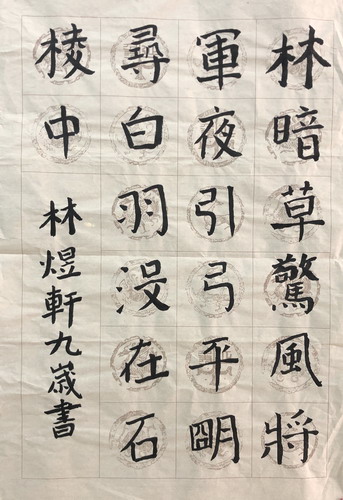 林暗草驚風將
軍夜引弓平明
尋白羽没在石
棱中
林煜軒九歲書